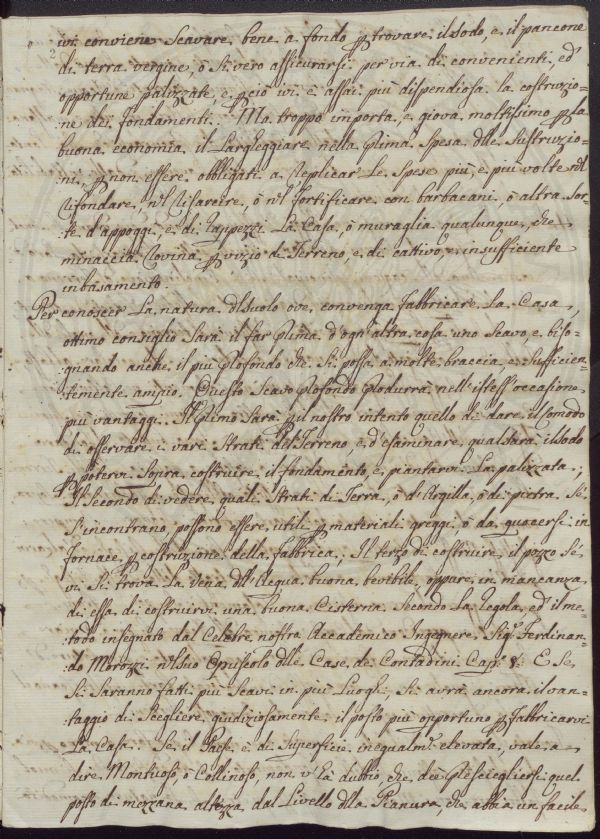 ivi conviene Scavare bene a fondo p trovare il sodo, e il pancone
di terra vergine, ò si vero assicurarsi per via di convenienti, ed
opportune palizzate, e pciò ivi è assai più dispendiosa la costruzio-
ne dei fondamenti. Ma troppo importa, e giova moltissimo p la
buona economia il Largheggiare nella prima Spesa dlle Sustruzio-
ni, p non essere obbligati a replicar Le Spese più, e più volte nel
rifondare, nel risarcire, ò nel fortificare con barbacani, ò altra Sor-
te d'appoggj, e di rappezzi La Casa, ò muraglia qualunque, che
minaccia rovina p vizio di Terreno, e di cattivo, e insufficiente
inbasamento.
Per conoscer La natura del Suolo ove convenga Fabbricare La Casa,
ottimo consiglio Sarà il far prima d'ogn'altra cosa uno Scavo, e biso-
gnando anche il più profondo che Si possa a molte braccia, e Sufficien-
temente ampio. Questo Scavo profondo produrrà nell'istess'occasione
più vantaggi. Il primo Sarà p il nostro intento quello di dare il Comodo
di osservare i varj Strati del Terreno, e d'esaminare qual sarà il sodo
p potervi Sopra costruire il fondamento, e piantarvi La palizzata;
Il Secondo di vedere quali Strati di Terra, ò d'Argilla, ò di pietra Se
S'incontrano possono essere utili p materiali greggi, ò da quocersi in
Fornace p costruzione della fabbrica; Il terzo di costruire il pozzo Se
vi Si trova La vena dll'Acqua buona bevibile, oppure in mancanza
di essa di costruirvi una buona Cisterna Secondo La Regola, ed il me-
todo insegnato dal Celebre nostro Accademico Ingegnere Sigr. Ferdinan-
do Morozzi nel suo Opuscolo dlle Case de Contadini Cap. E Se
Si Saranno fatti più Scavi in più Luoghi, Si avrà ancora il van-
taggio di Scegliere giudiziosamente il posto più opportuno p Fabbricarvi
La Casa. Se il Paese è di Superficie inegualmte. elevata, vale a
dire Montuoso, ò Collinoso, non v'ha dubbio, che dee prescieglersi quel
posto di mezzana altezza dal Livello dlla Pianura, che abbia un facile